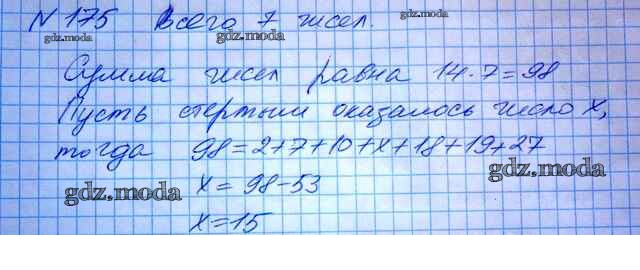 № 175 Всего 7 чисел.
gdz.moda gdz.moda gdz.moda
Сумма чисел равна 14·7=98
Пусть стертым оказалось число x,
тогда 98=2+7+10+x+18+19+27
gdz.moda gdz.moda
x = 98-53
gdz.moda
x=15